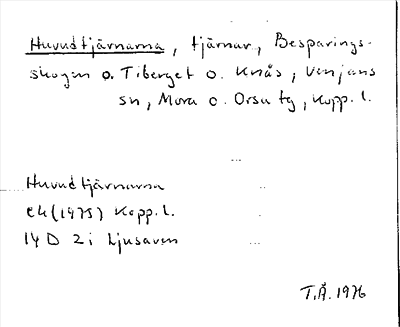 Huvudtjärnarna, tjärnar, Besparings-
skogen o. Tiberget o. Knås, Venjans
sn, Mora o. Orsa tg, Kopp. l.
Huvudtjärnarna
ek (1975) Kopp. l.
14 D 2 i Ljusaven
T.Å. 1976